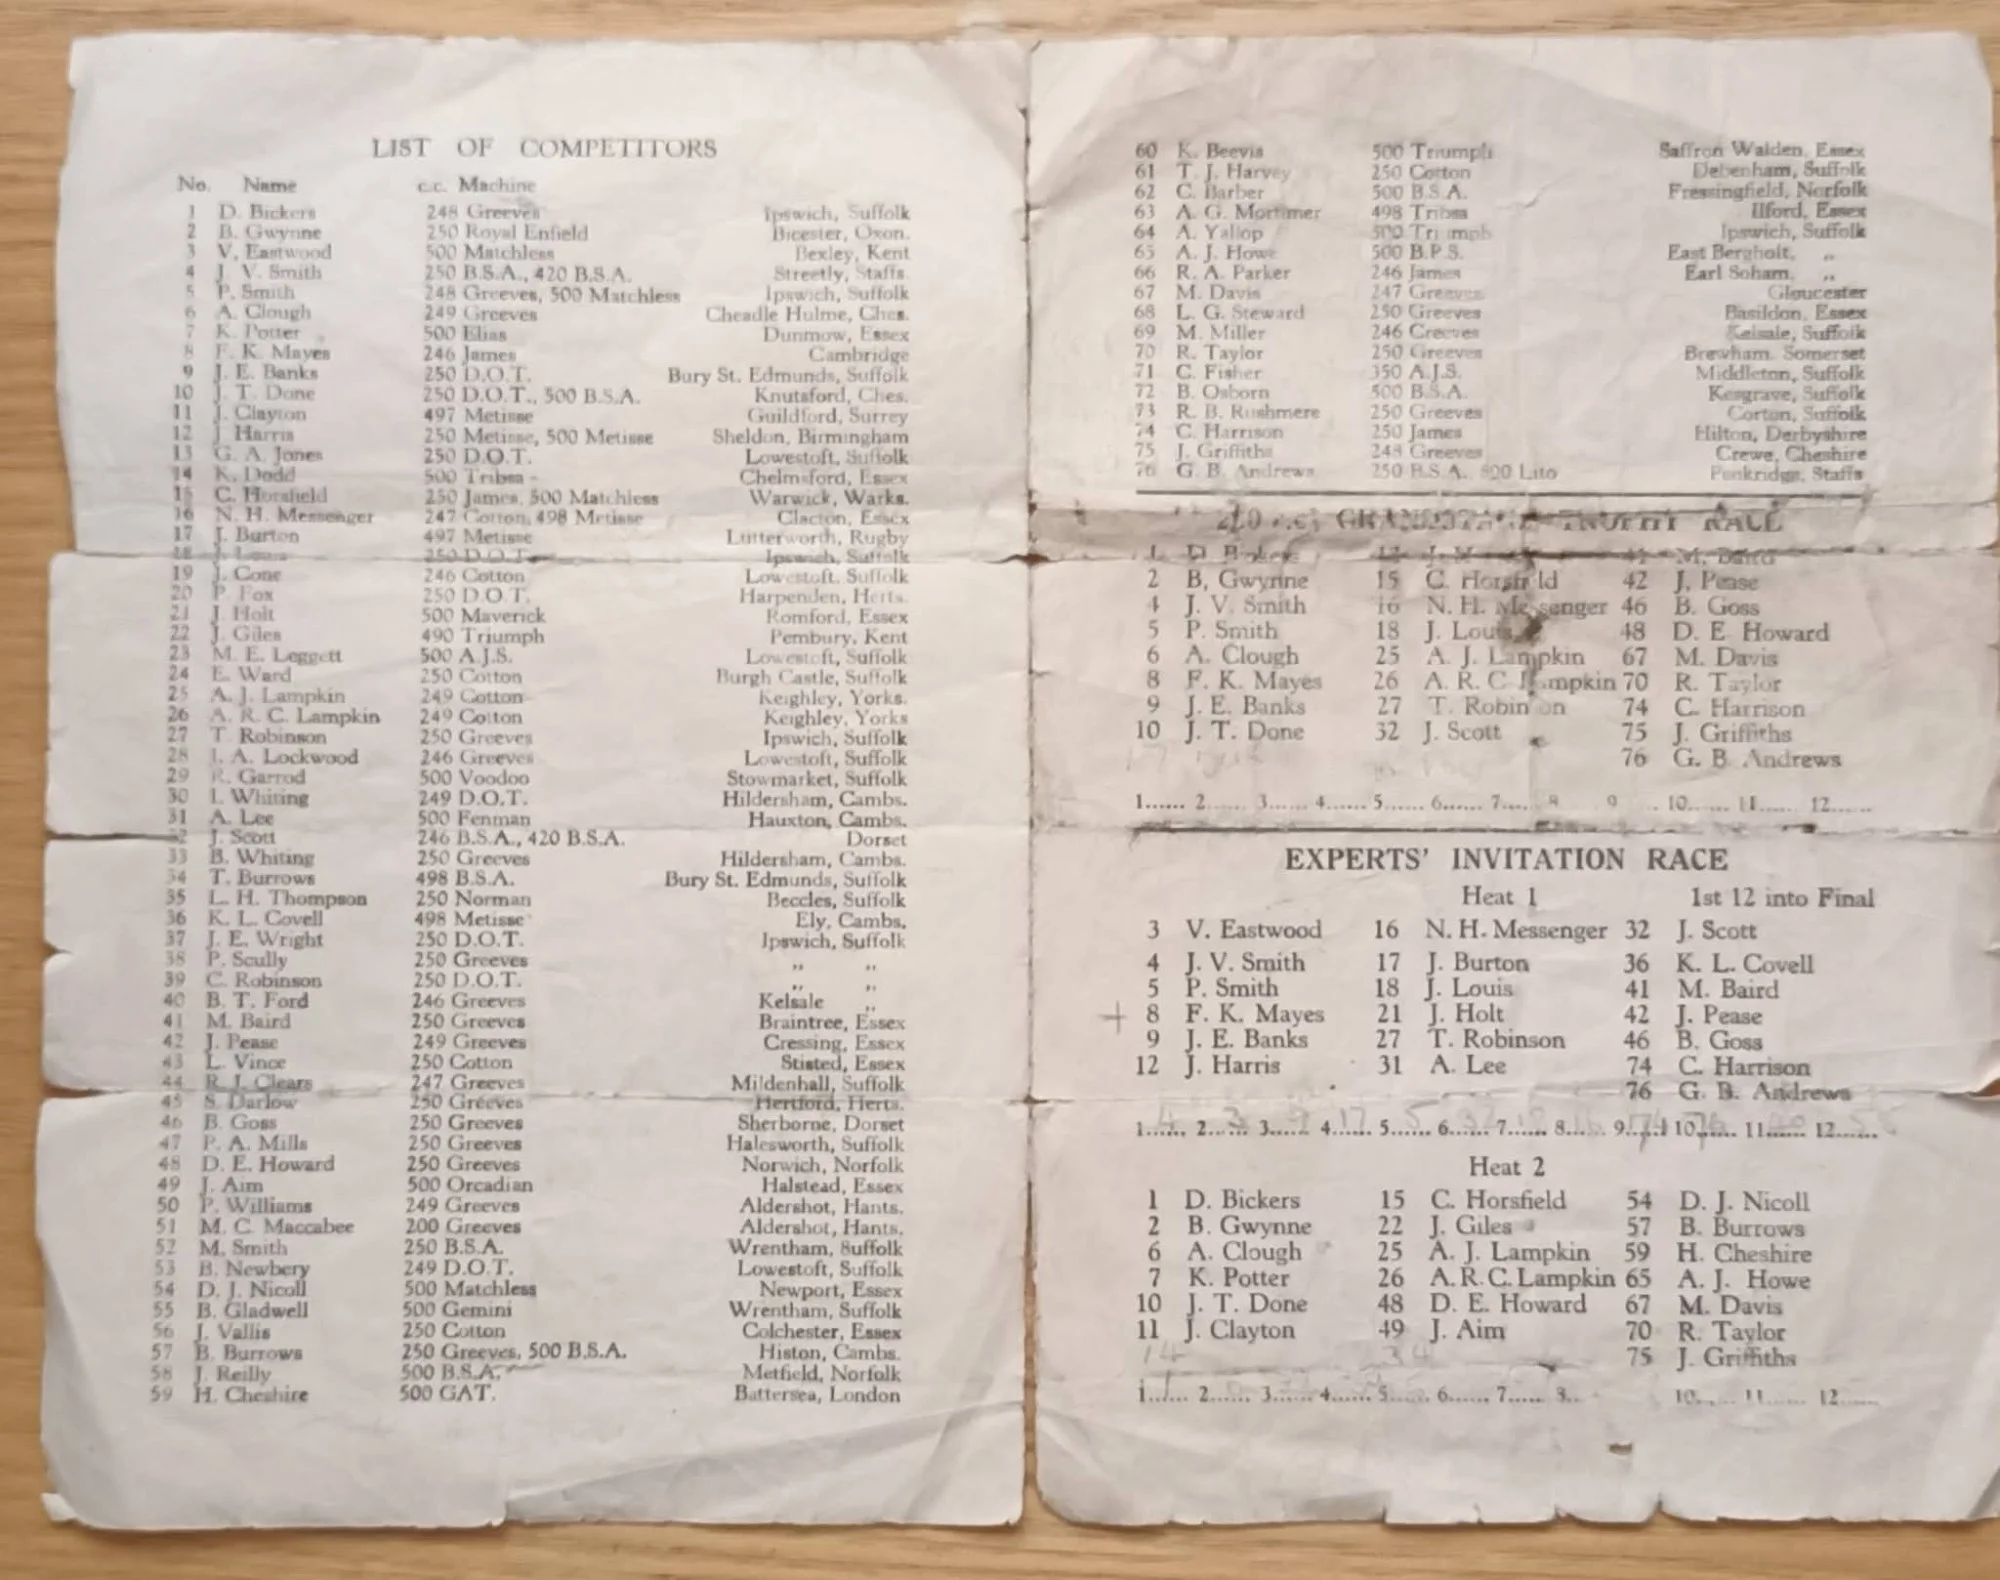 LIST OF COMPETITORS
No. Name c.c. Machine
1 D. Bickers 248 Greeves Ipswich, Suffolk
2 B. Gwynne 250 Royal Enfield Bicester, Oxon.
3 V. Eastwood 500 Matchless Bexley, Kent
4 J. V. Smith 250 B.S.A., 420 B.S.A. Streetly, Staffs.
5 P. Smith 248 Greeves, 500 Matchless Ipswich, Suffolk
6 A. Clough 249 Greeves Cheadle Hulme, Ches.
7 K. Potter 500 Elias Dunmow, Essex
8 F. K. Mayes 246 James Cambridge
9 J. E. Banks 250 D.O.T. Bury St. Edmunds, Suffolk
10 J. T. Done 250 D.O.T., 500 B.S.A. Knutsford, Ches.
11 J. Clayton 497 Metisse Guildford, Surrey
12 J Harris 250 Metisse, 500 Metisse Sheldon, Birmingham
13 G. A. Jones 250 D.O.T. Lowestoft, Suffolk
14 K. Dodd 500 Tribsa Chelmsford, Essex
15 C. Horsfield 250 James, 500 Matchless Warwick, Warks.
16 N. H. Messenger 247 Cotton, 498 Metisse Clacton, Essex
17 J. Burton 497 Metisse Lutterworth, Rugby
18 J. Louis 250 D.O.T. Ipswich, Suffolk
19 J. Cone 246 Cotton Lowestoft, Suffolk
20 P. Fox 250 D.O.T. Harpenden, Herts.
21 J. Holt 500 Maverick Romford, Essex
22 J. Giles 490 Triumph Pembury, Kent
23 M. E. Leggett 500 A.J.S. Lowestoft, Suffolk
24 E. Ward 250 Cotton Burgh Castle, Suffolk
25 A. J. Lampkin 249 Cotton Keighley, Yorks.
26 A. R. C. Lampkin 249 Cotton Keighley, Yorks
27 T. Robinson 250 Greeves Ipswich, Suffolk
28 A. Lockwood 246 Greeves Lowestoft, Suffolk
29 R. Garrod 500 Voodoo Stowmarket, Suffolk
30 I. Whiting 249 D.O.T. Hildersham, Cambs.
31 A. Lee 500 Fenman Hauxton, Cambs.
32 J. Scott 246 B.S.A., 420 B.S.A. Dorset
33 B. Whiting 250 Greeves Hildersham, Cambs.
34 T. Burrows 498 B.S.A. Bury St. Edmunds, Suffolk
35 L. H. Thompson 250 Norman Beccles, Suffolk
36 K. L. Covell 498 Metisse Ely, Cambs.
37 J. E. Wright 250 D.O.T. Ipswich, Suffolk
38 P. Scully 250 Greeves ,, ,,
39 C. Robinson 250 D.O.T. ,, ,,
40 B. T. Ford 246 Greeves Kelsale ,,
41 M. Baird 250 Greeves Braintree, Essex
42 J. Pease 249 Greeves Cressing, Essex
43 L. Vince 250 Cotton Stisted, Essex
44 R. J. Clears 247 Greeves Mildenhall, Suffolk
45 S. Darlow 250 Greeves Hertford, Herts.
46 B. Goss 250 Greeves Sherborne, Dorset
47 P. A. Mills 250 Greeves Halesworth, Suffolk
48 D. E. Howard 250 Greeves Norwich, Norfolk
49 J. Aim 500 Orcadian Halstead, Essex
50 P. Williams 249 Greeves Aldershot, Hants.
51 M. C. Maccabee 200 Greeves Aldershot, Hants.
52 M. Smith 250 B.S.A. Wrentham, Suffolk
53 B. Newbery 249 D.O.T. Lowestoft, Suffolk
54 D. J. Nicoll 500 Matchless Newport, Essex
55 B. Gladwell 500 Gemini Wrentham, Suffolk
56 J. Vallis 250 Cotton Colchester, Essex
57 B. Burrows 250 Greeves, 500 B.S.A. Histon, Cambs.
58 J. Reilly 500 B.S.A. Metfield, Norfolk
59 H. Cheshire 500 GAT. Battersea, London
60 K. Beevis 500 Triumph Saffron Walden, Essex
61 T. J. Harvey 250 Cotton Debenham, Suffolk
62 C. Barber 500 B.S.A. Fressingfield, Norfolk
63 A. G. Mortimer 498 Tribsa Ilford, Essex
64 A. Yallop 500 Triumph Ipswich, Suffolk
65 A. J. Howe 500 B.P.S. East Bergholt, ,,
66 R. A. Parker 246 James Earl Soham, ,,
67 M. Davis 247 Greeves Gloucester
68 L. G. Steward 250 Greeves Basildon, Essex
69 M. Miller 246 Greeves Kelsale, Suffolk
70 R. Taylor 250 Greeves Brewham, Somerset
71 C. Fisher 350 A.J.S. Middleton, Suffolk
72 B. Osborn 500 B.S.A. Kesgrave, Suffolk
73 R. B. Rushmere 250 Greeves Corton, Suffolk
74 C. Harrison 250 James Hilton, Derbyshire
75 J. Griffiths 248 Greeves Crewe, Cheshire
76 G. B. Andrews 250 B.S.A. 500 Lito Penkridge, Staffs
TROPHY RACE
1 D. Bickers 41 M. Baird
2 B, Gwynne 15 C. Horsfield 42 J. Pease
4 J. V. Smith 16 N. H. Messenger 46 B. Goss
5 P. Smith 18 J. Louis 48 D. E Howard
6 A. Clough 25 A. J. Lampkin 67 M. Davis
8 F. K. Mayes 26 A. R. C Lampkin 70 R. Taylor
9 J. E. Banks 27 T. Robinson 74 C. Harrison
10 J. T. Done 32 J. Scott 75 J. Griffiths
76 G. B. Andrews
1...... 2...... 3...... 4...... 5...... 6...... 7...... 8 9 10...... 11...... 12......
EXPERTS' INVITATION RACE
Heat 1 1st 12 into Final
3 V. Eastwood 16 N. H. Messenger 32 J. Scott
4 J. V. Smith 17 J. Burton 36 K. L. Covell
5 P. Smith 18 J. Louis 41 M. Baird
+ 8 F. K. Mayes 21 J. Holt 42 J. Pease
9 J. E. Banks 27 T. Robinson 46 B. Goss
12 J. Harris 31 A. Lee 74 C. Harrison
76 G. B. Andrews
1...... 2...... 3...... 4...... 5...... 6...... 7...... 8...... 9...... 10...... 11...... 12......
Heat 2
1 D. Bickers 15 C. Horsfield 54 D. J. Nicoll
2 B. Gwynne 22 J. Giles 57 B. Burrows
6 A. Clough 25 A. J. Lampkin 59 H. Cheshire
7 K. Potter 26 A. R. C. Lampkin 65 A. J. Howe
10 J. T. Done 48 D. E. Howard 67 M. Davis
11 J. Clayton 49 J. Aim 70 R. Taylor
14 34 75 J. Griffiths
1...... 2...... 3...... 4...... 5...... 6...... 7...... 8.. 10...... 11...... 12......